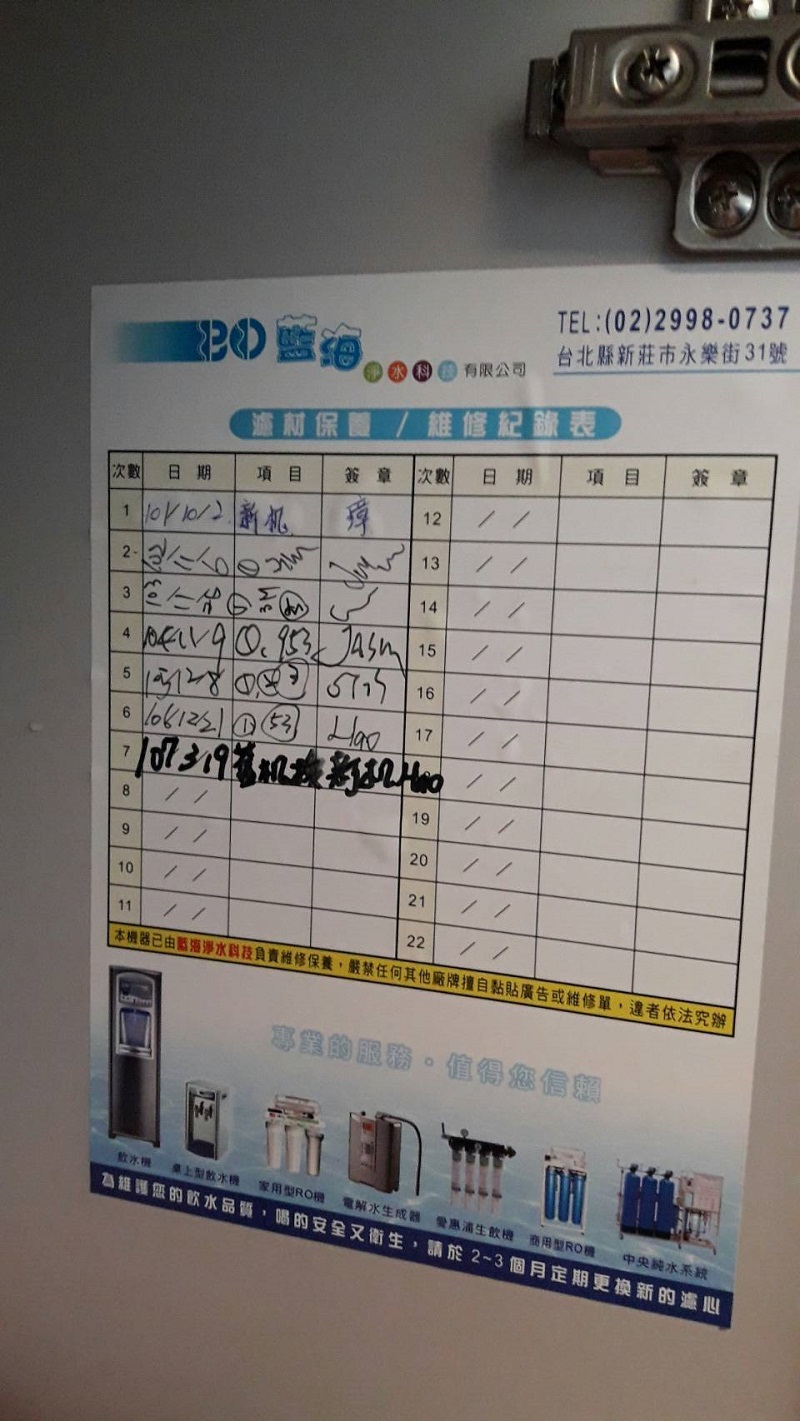 藍海
淨水科技有限公司
TEL:(02)2998-0737
台北縣新莊市永樂街31號
濾材保養 / 維修紀錄表
次數 日期 項目 簽章 次數 日期 項目 簽章
1 101/10/2 新机 璋 12 / /
2 13 / /
3 14 / /
4 ①. 953 Jasm 15 / /
5 16 / /
6 106 12 21 ① 53 Hao 17 / /
7 107 3 19 舊机換新机 Hao / /
8 / / 19 / /
9 / / 20 / /
10 / / 21 / /
11 / / 22 / /
本機器已由藍海淨水科技負責維修保養，嚴禁任何其他廠牌擅自黏貼廣告或維修單，違者依法究辦
專業的服務・值得您信賴
飲水機 桌上型飲水機 家用型RO機 電解水生成器 愛惠浦生飲機 商用型RO機 中央純水系統
為維護您的飲水品質，喝的安全又衛生，請於2~3個月定期更換新的濾心